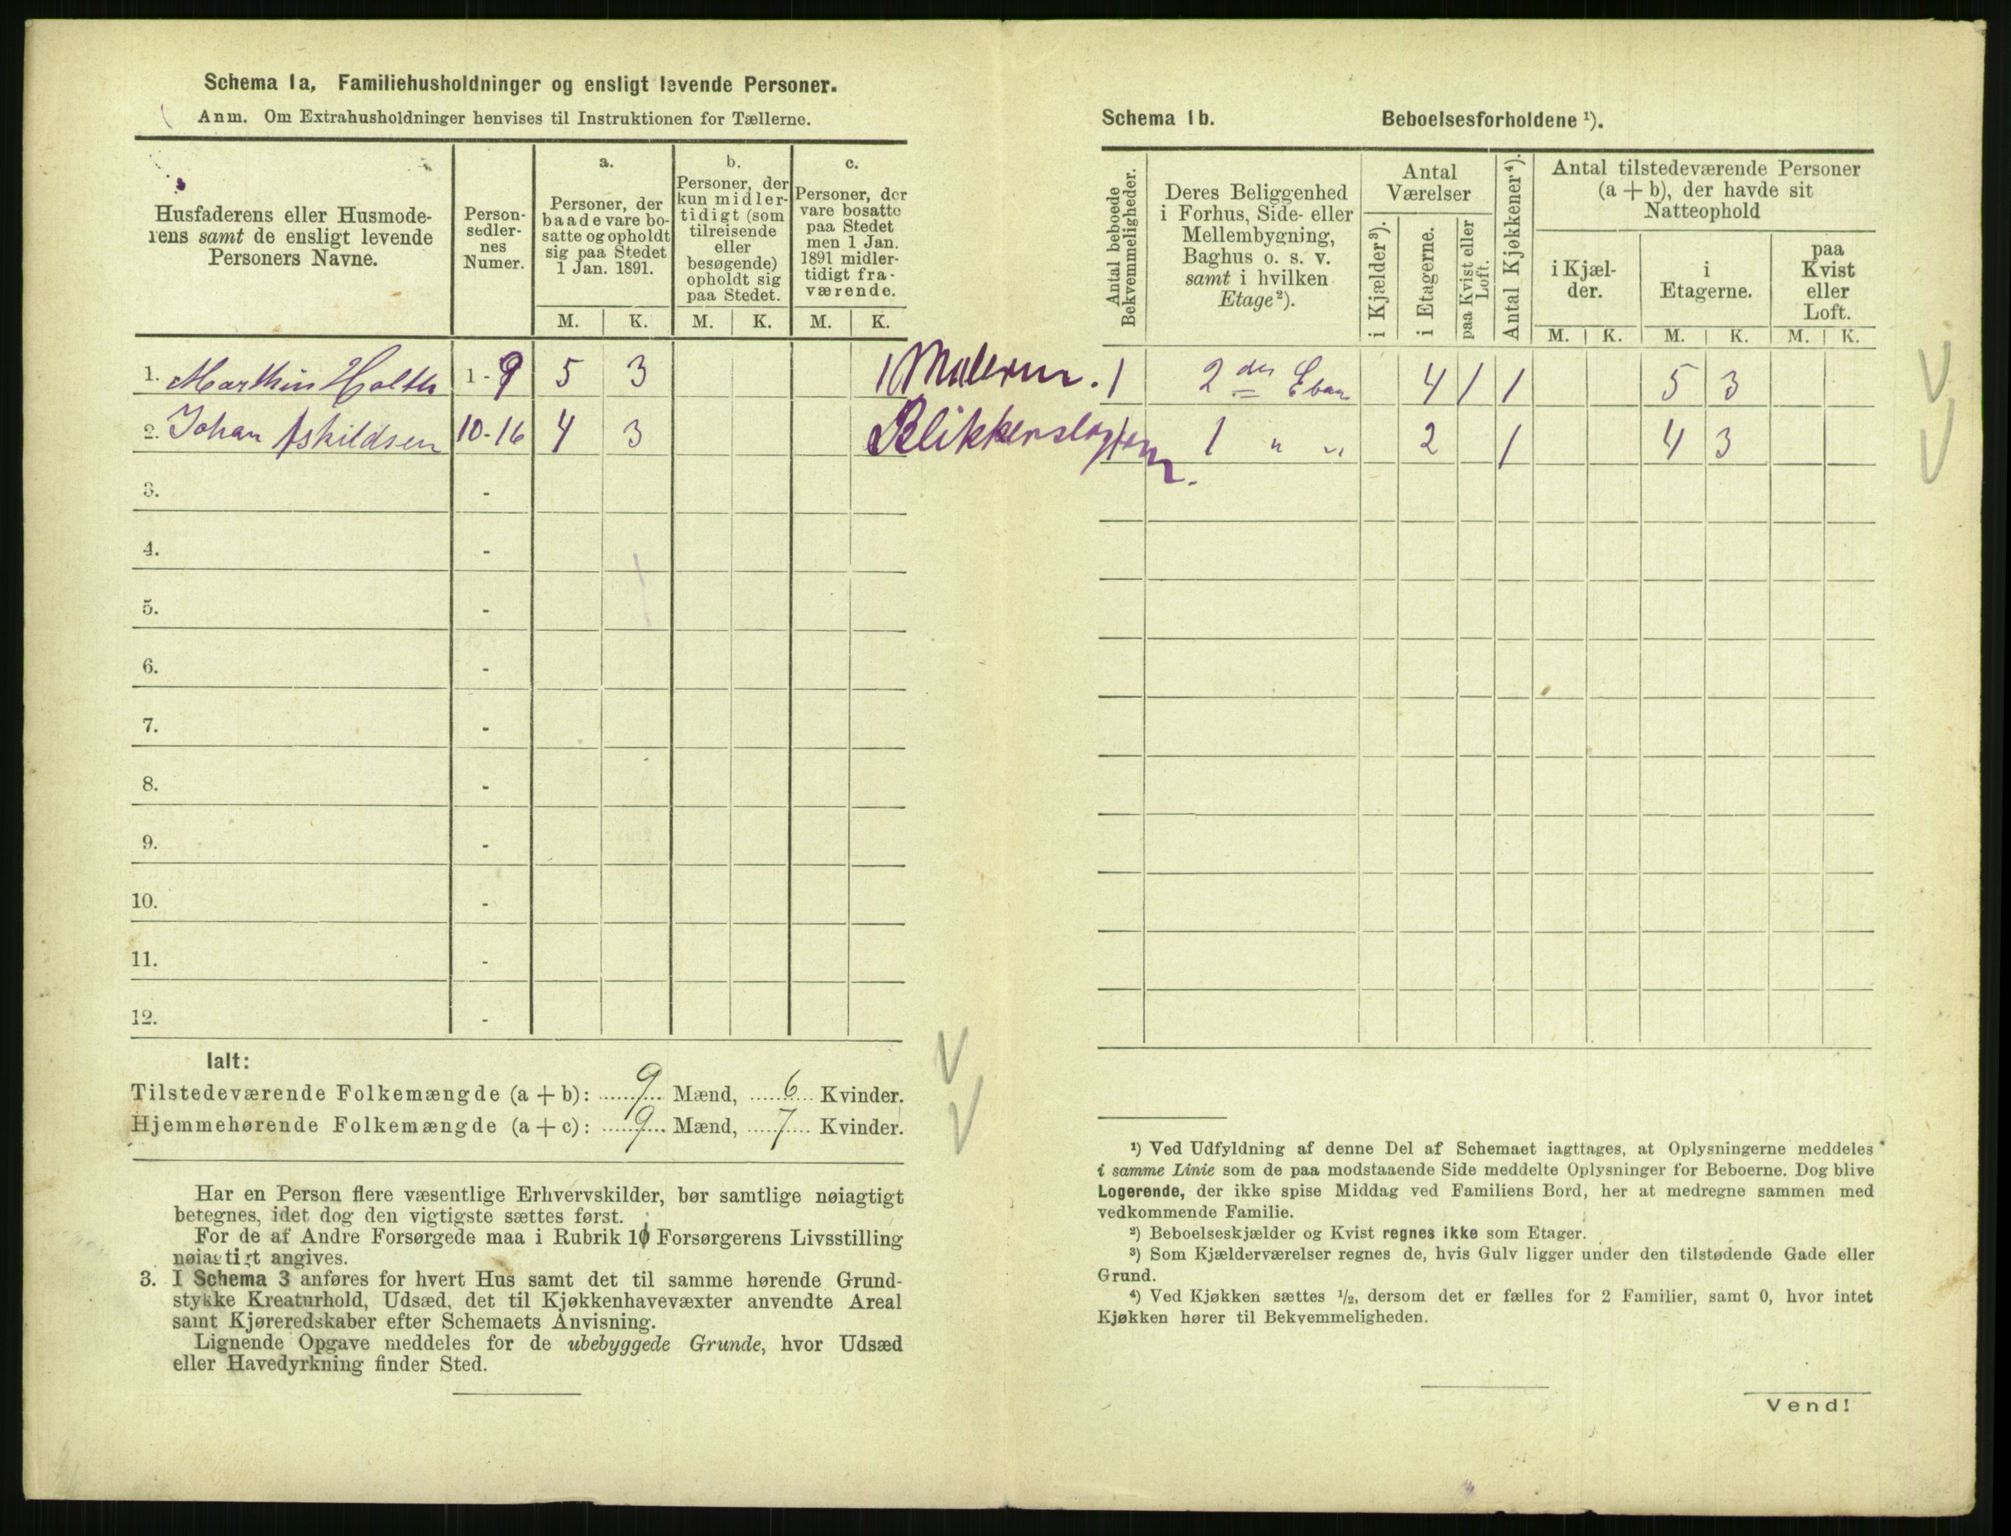 Schema 1a, Familiehusholdninger og ensligt levende Personer.
Anm. Om Extrahusholdninger henvises til Instruktionen for Tællerne.
Husfaderens eller Husmode-
rens samt de ensligt levende
Personers Navne.
Person-
sedler-
nes
Numer.
a.
Personer, der
baade vare bo-
satte og opholdt
sig paa Stedet
1 Jan. 1891.
b.
Personer, der
kun midler-
tidigt (som
tilreisende
eller
besøgende)
opholdt sig
paa Stedet.
c.
Personer, der
vare bosatte
paa Stedet
men 1 Jan.
1891 midler-
tidigt fra-
værende.
M. K. M. K. M. K.
1. Marthin Holth 1 - 9 5 3 1 Malerm.
2. Johan Askildsen 10-16 4 3 Blikkenslagerm.
3. -
4. -
5. -
6. -
7. -
8. -
9. -
10. -
11. -
12. -
Ialt:
Tilstedeværende Folkemængde (a + b): 9 Mænd, 6 Kvinder.
Hjemmehørende Folkemængde (a + c): 9 Mænd, 7 Kvinder.
Har en Person flere væsentlige Erhvervskilder, bør samtlige nøiagtigt
betegnes, idet dog den vigtigste sættes først.
For de af Andre Forsørgede maa i Rubrik 10 Forsørgerens Livsstilling
nøiagtigt angives.
3. I Schema 3 anføres for hvert Hus samt det til samme hørende Grund-
stykke Kreaturhold, Udsæd, det til Kjøkkenhavevæxter anvendte Areal
samt Kjøreredskaber efter Schemaets Anvisning.
Lignende Opgave meddeles for de ubebyggede Grunde, hvor Udsæd
eller Havedyrkning finder Sted.
Schema 1b. Beboelsesforholdene ¹).
Antal beboede
Bekvemmeligheder.
Deres Beliggenhed
i Forhus, Side- eller
Mellembygning,
Baghus o. s. v.
samt i hvilken
Etage²).
Antal
Værelser
i Kjælder³).
i Etagerne.
paa Kvist eller
Loft.
Antal Kjøkkener⁴).
Antal tilstedeværende Personer
(a + b), der havde sit
Natteophold
i Kjæl-
der.
i
Etagerne.
paa
Kvist
eller
Loft.
M. K. M. K. M. K.
1 2 den 4 1 1 5 3
1 " " 2 1 4 3
¹) Ved Udfyldning af denne Del af Schemaet iagttages, at Oplysningerne meddeles
i samme Linie som de paa modstaaende Side meddelte Oplysninger for Beboerne. Dog blive
Logerende, der ikke spise Middag ved Familiens Bord, her at medregne sammen med
vedkommende Familie.
²) Beboelseskjælder og Kvist regnes ikke som Etager.
³) Som Kjælderværelser regnes de, hvis Gulv ligger under den tilstødende Gade eller
Grund.
⁴) Ved Kjøkken sættes ½, dersom det er fælles for 2 Familier, samt 0, hvor intet
Kjøkken hører til Bekvemmeligheden.
Vend!